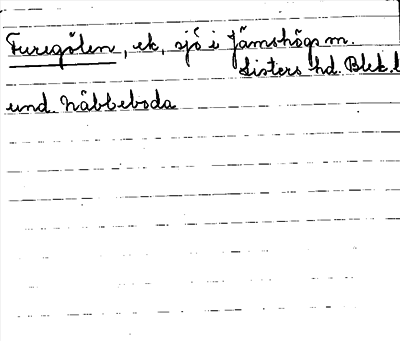 Furegölen, ek, sjö i Jämshögs m.
Listers hd. Blek. l
und. Näbbeboda